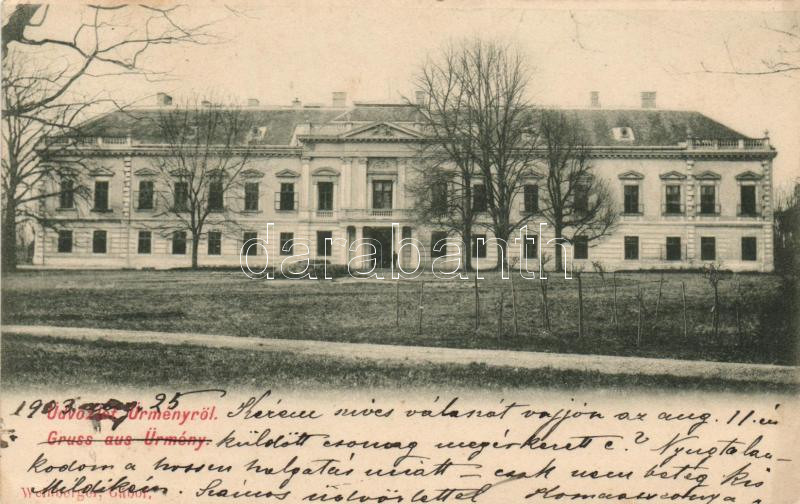 darabanth
1903 aug. 25
Üdvözlet Ürményről. Kérem szives válaszát vajjon az aug. 11-én
Gruss aus Ürmény. küldött csomag megérkezett e? Nyugtalan-
kodom a hosszu hallgatás miatt – csak nem beteg kis
Weinberger, Gábor. Mildikém. Számos üdvözlettel